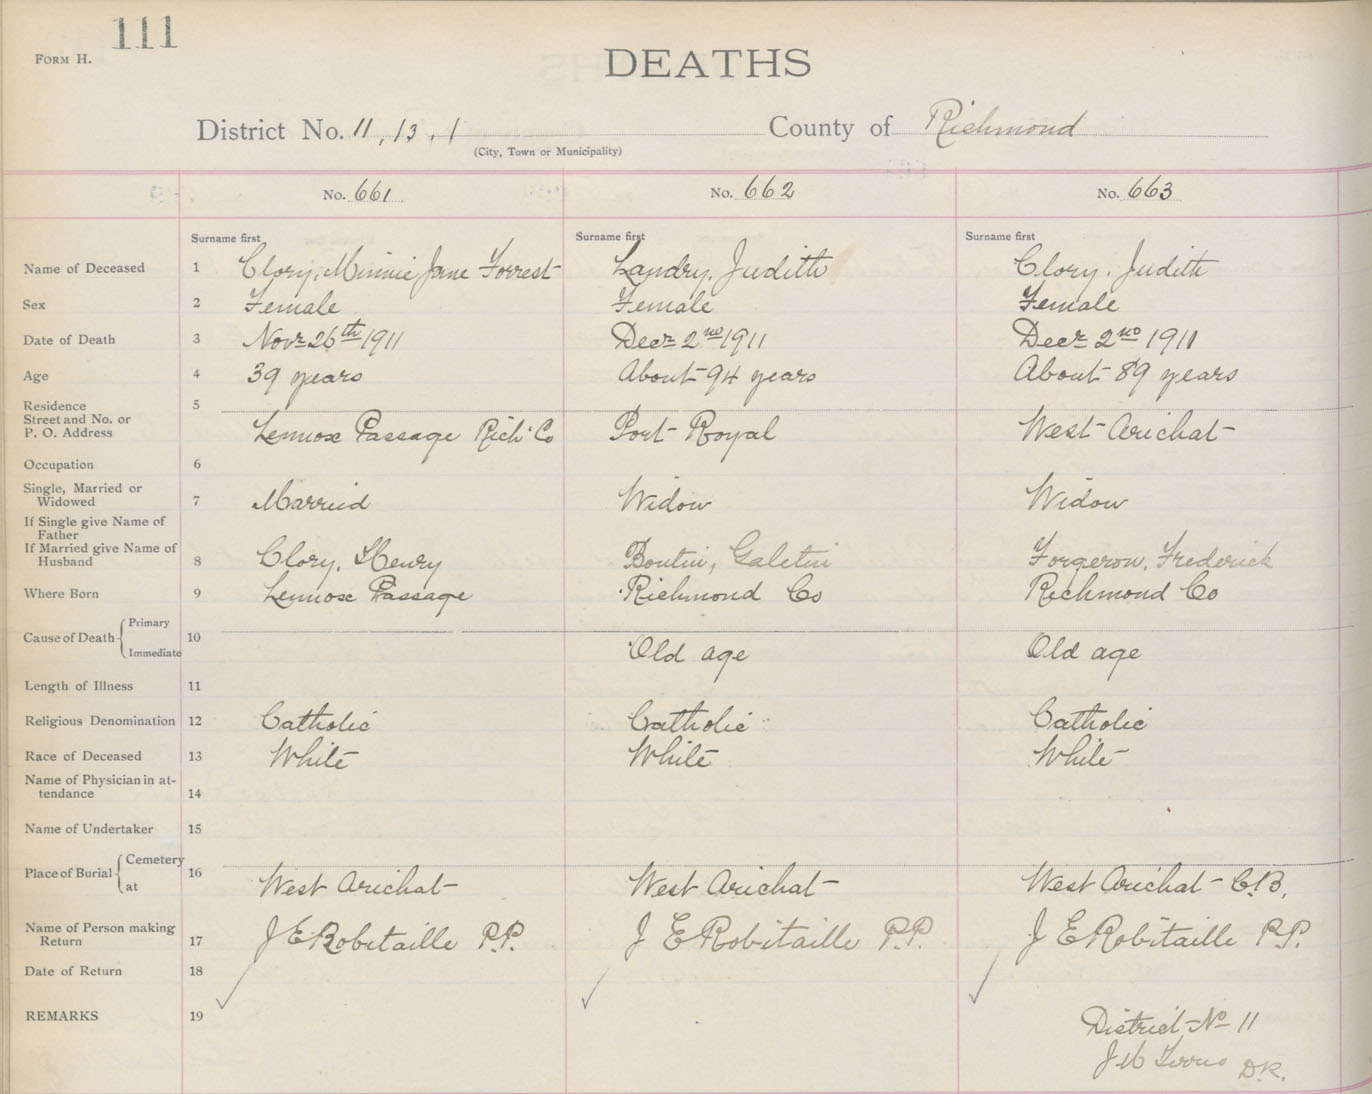 111
FORM H.
DEATHS
District No. 11, 13, 1 County of Richmond
(City, Town or Municipality)
No. 661 No. 662 No. 663
Surname first Surname first Surname first
Name of Deceased 1 Clory, Minnie Jane Forrest Landry, Judith Clory, Judith
Sex 2 Female Female Female
Date of Death 3 Novr 26th 1911 Decr 2nd 1911 Decr 2nd 1911
Age 4 39 years About 94 years About 89 years
Residence 5
Street and No. or
P. O. Address Lennox Passage Rich Co Port Royal West Arichat
Occupation 6
Single, Married or
Widowed 7 Married Widow Widow
If Single give Name of
Father
If Married give Name of
Husband 8 Clory, Henry Boutin, Forgeron, Frederick
Where Born 9 Lennox Passage Richmond Co Richmond Co
Cause of Death Primary 10
Immediate Old age Old age
Length of Illness 11
Religious Denomination 12 Catholic Catholic Catholic
Race of Deceased 13 White White White
Name of Physician in at-
tendance 14
Name of Undertaker 15
Place of Burial Cemetery 16
at West Arichat West Arichat West Arichat C.B.
Name of Person making
Return 17 J E Robitaille P.P. J E Robitaille P.P. J E Robitaille P.P.
Date of Return 18
REMARKS 19 District No 11
D.R.